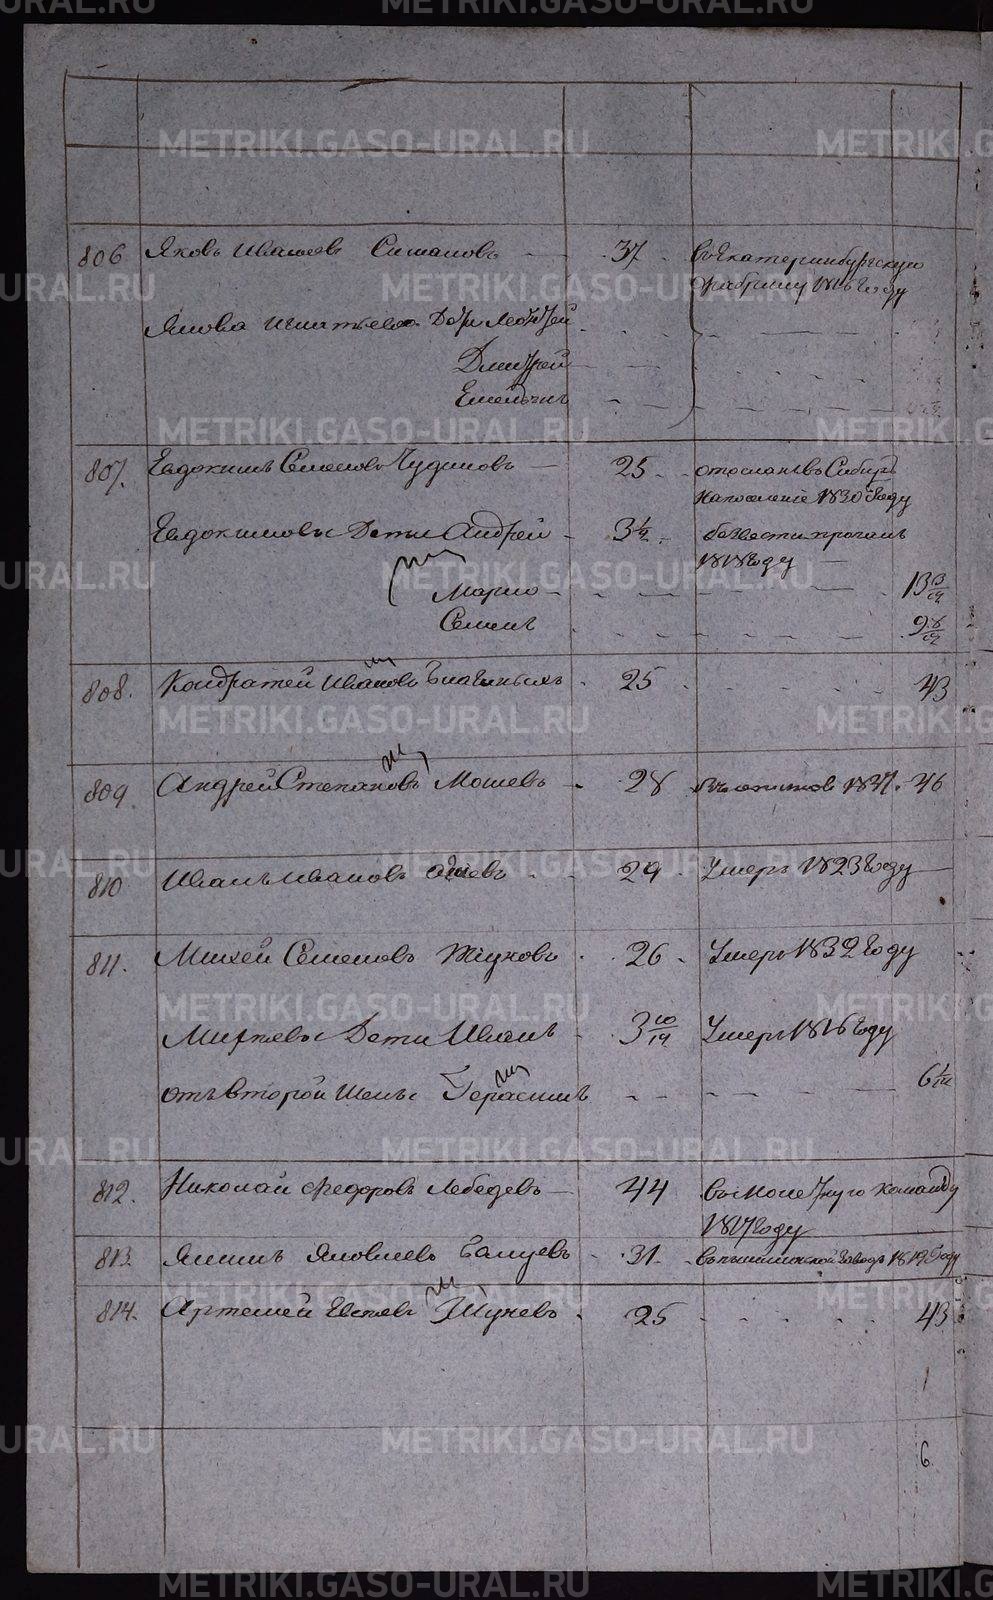 806 Яковъ Симановъ 37 въ Екатеринбургскую
фабрику 1816 году
Якова Игнатьева Дети Леонтей
Дмитрей
Емельянъ
807. Евдокимъ Семеновъ Чудиновъ 25 отосланъ въ Сибирь
на поселение 1830 году
Евдокимовы Дети Андрей 3½ безвести пропалъ
1818 году
Марко 13
Семенъ 9
808. Кондратей Ивановъ 25 43
809. Андрей Степановъ Мошевъ 28 46
810 Иванъ Ивановъ 29 Умеръ 1823 году
811. Михей Семеновъ Жуковъ 26 Умеръ 1832 году
Михеевы Дети Иванъ 3 10/12 Умеръ 1816 году
отъ второй жены Герасимъ 6
812. Николай Федоровъ Лебедевъ 44 въ Монетную команду
1817 году
813. Якимъ Яковлевъ 31 въ Пышминской заводъ 1819 году
814. Артемей 25 43
6
METRIKI.GASO-URAL.RU